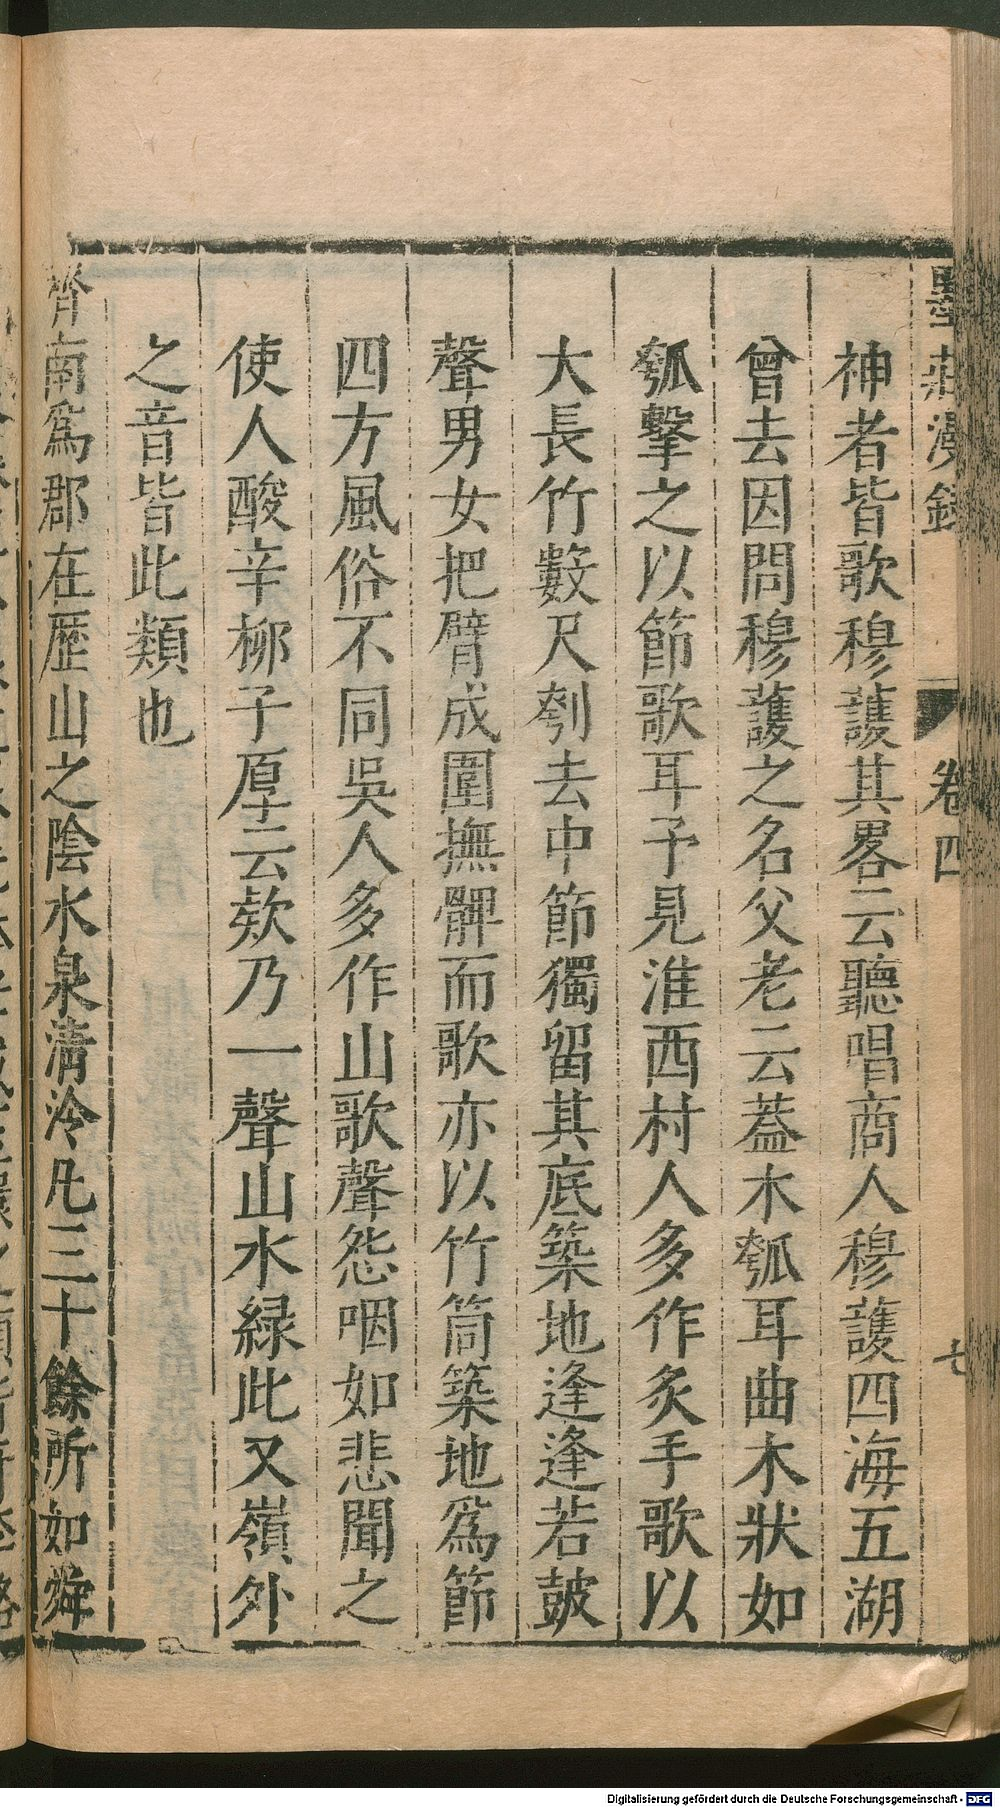 墨莊漫錄 卷四 七
神者皆歌穆護其畧云聽唱商人穆護四海五湖
曾去因問穆護之名父老云蓋木瓠耳曲木狀如
瓠擊之以節歌耳予見淮西村人多作炙手歌以
大長竹數尺刳去中節獨留其底築地逢逢若皷
聲男女把臂成圍撫髀而歌亦以竹筒築地爲節
四方風俗不同吳人多作山歌聲怨咽如悲聞之
使人酸辛栁子厚云欸乃一聲山水緑此又嶺外
之音皆此類也
齊南爲郡在歷山之陰水泉清泠凡三十餘所如舜
Digitalisierung gefördert durch die Deutsche Forschungsgemeinschaft - DFG